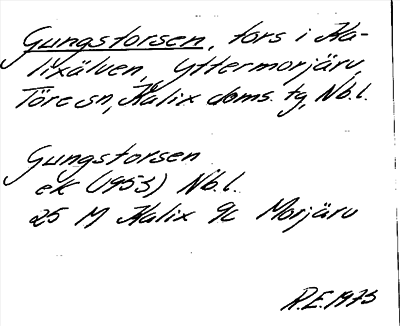 Gungstorsen, fors i Ka-
lixälven, Yttermorjärv,
Töre sn, Kalix doms. tg, Nb.l.
Gungstorsen
ek (1953) Nb.l.
25 M Kalix 9c Morjärv
R.E. 1973